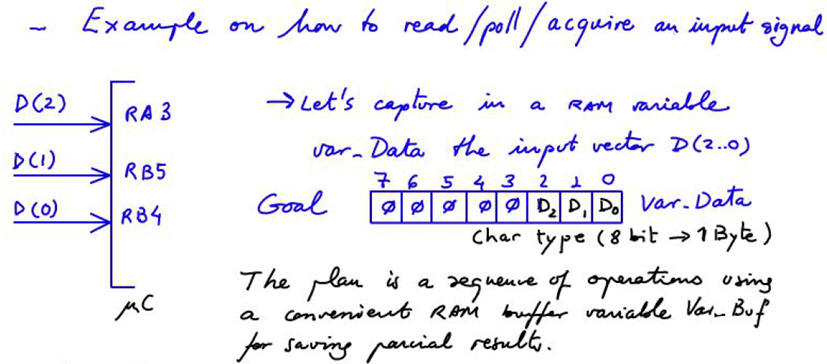 - Example on how to read/poll/acquire an input signal
D(2) RA3
D(1) RB5
D(0) RB4
μC
→ Let's capture in a RAM variable
var_Data the input vector D(2..0)
7 6 5 4 3 2 1 0
Goal ø ø ø ø ø D₂ D₁ D₀ Var_Data
Char type (8 bit → 1 Byte)
The plan is a sequence of operations using
a convenient RAM buffer variable Var_Buf
for saving parcial results.